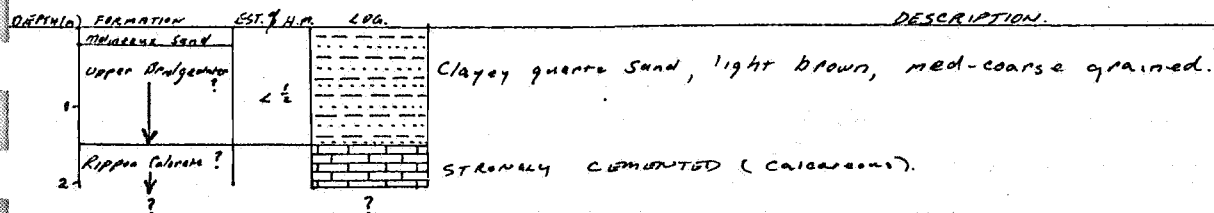 DEPTH(m) FORMATION EST. % H.M. LOG. DESCRIPTION.
Molineaux Sand
Upper Bridgewater ?
Clayey quartz sand, light brown, med-coarse grained.
1- < 1/2
Rippon Calcrete ?
STRONGLY CEMENTED (calcareous).
2-
? ?